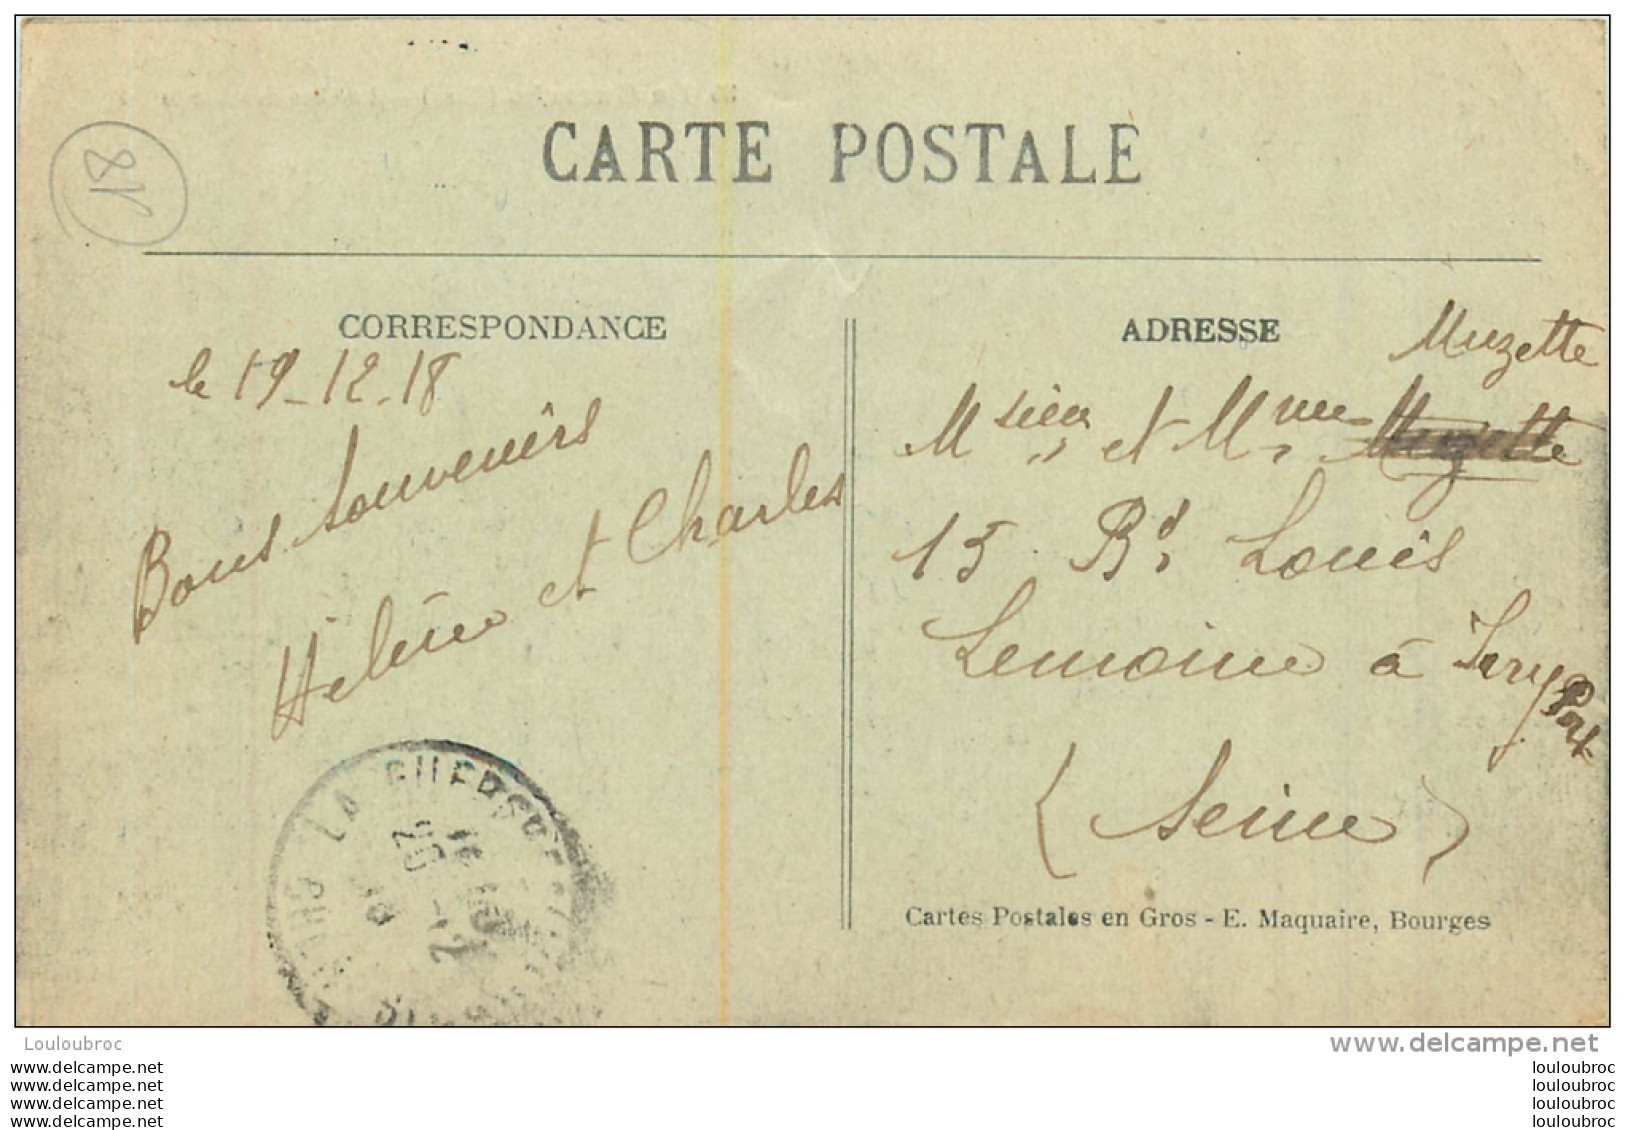 18
CARTE POSTALE
CORRESPONDANCE
le 19-12-18
Bons Souvenirs
Hélène et Charles
ADRESSE
Muzette
Msieur et Mme Muzette
15 Bd Louis
Lemoine à Ivry Port
(Seine)
LA GUERCHE
20 -12
18
CHER
Cartes Postales en Gros - E. Maquaire, Bourges
Louloubroc
www.delcampe.net
www.delcampe.net
www.delcampe.net
www.delcampe.net
www.delcampe.net
louloubroc
louloubroc
louloubroc
louloubroc